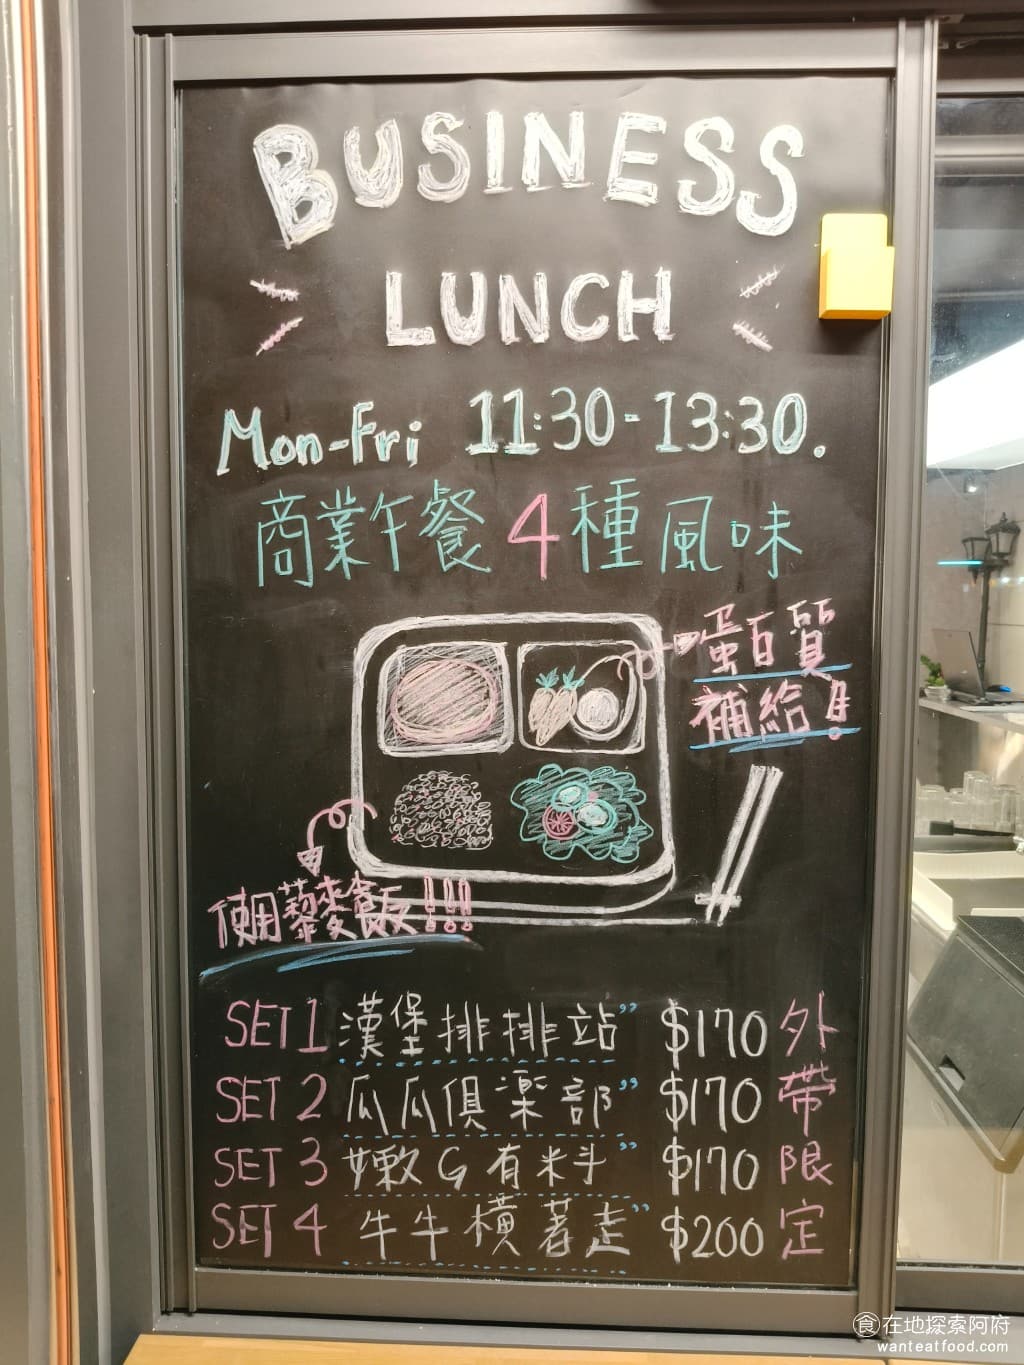 BUSINESS
LUNCH
Mon-Fri 11:30-13:30.
商業午餐4種風味
蛋白質
補給!
使用藜麥飯!!!
SET 1 漢堡排排站” $170
SET 2 瓜瓜俱楽部” $170
SET 3 嫩G有料 $170
SET 4 牛牛橫著走” $200
外帶限定
食 在地探索阿府
wanteatfood.com